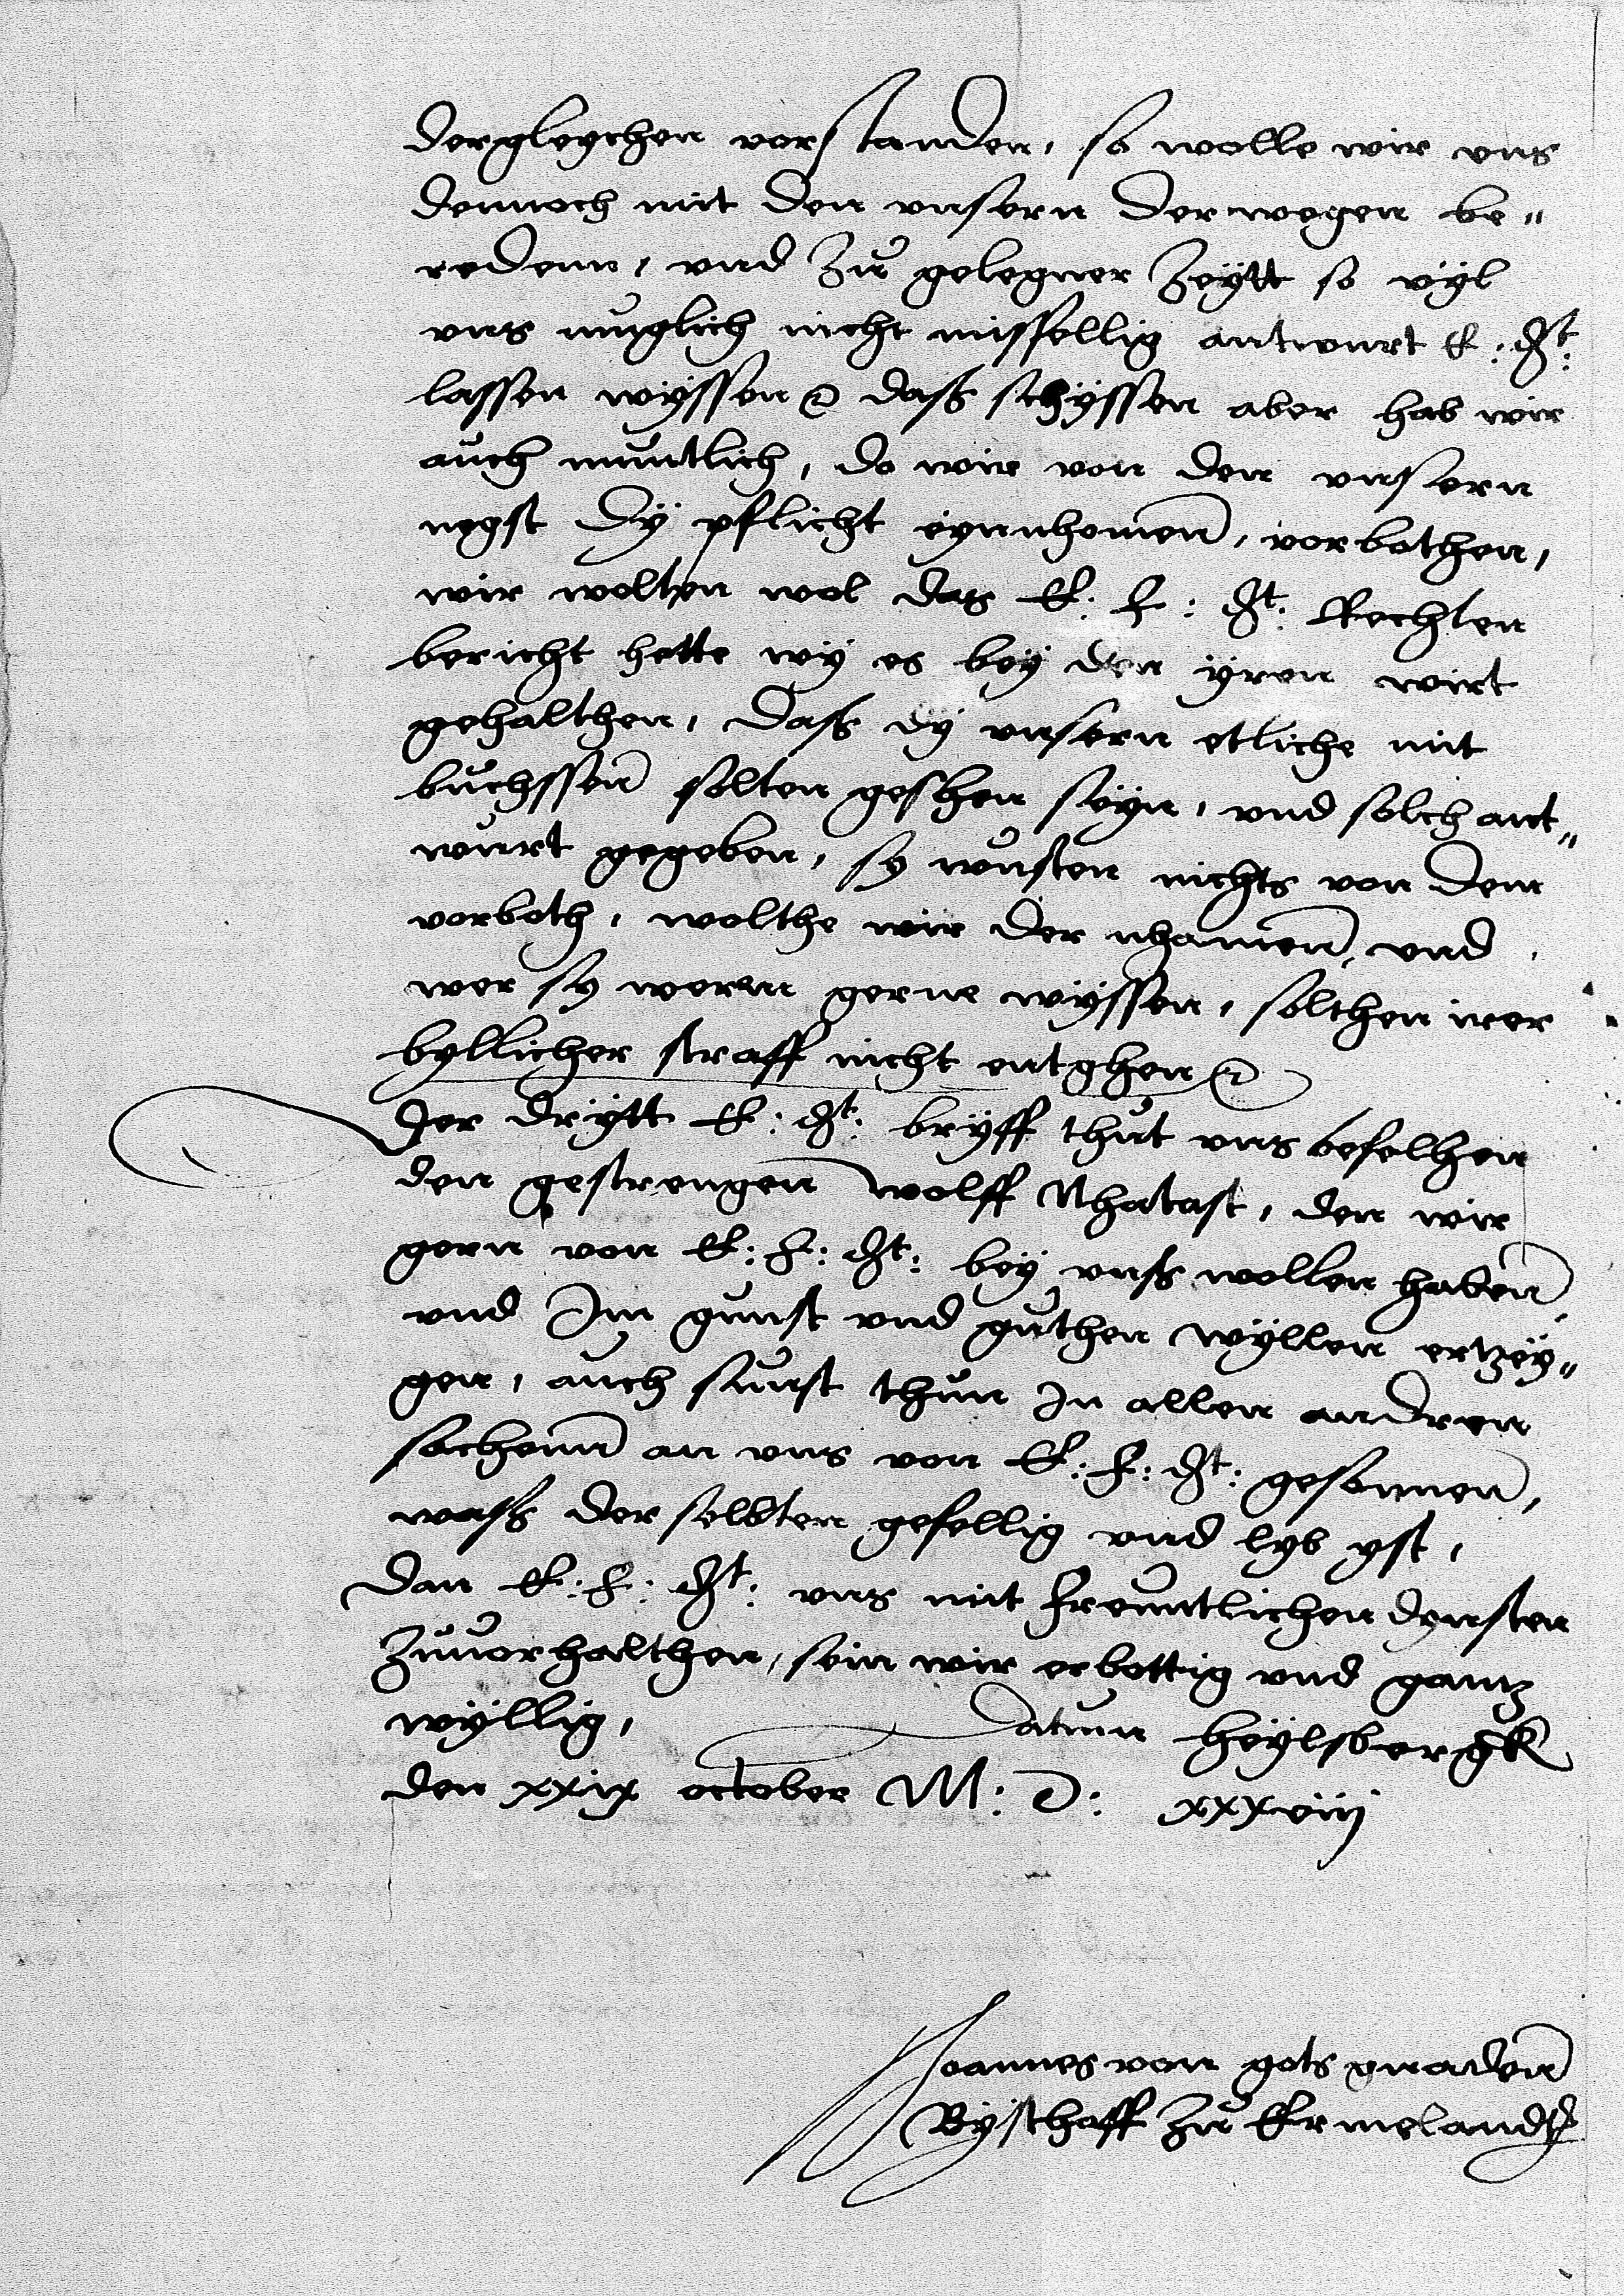 dergleychen vorstanden, so wolle wir vns
dennoch mit den vnsern derwegen be„
redenn, vnd zu gelegner zeytt so vyl
vns muglich nicht missellig antwurt E. d̶t:
lassen wyssen ɛ daß schyssen aber hab wir
auch muntlich, do wir von den vnsern
negst dy pflicht eynnhomen, vorbothen,
wir wolten wol das E: F: dt: Rechten
bericht hette wy es bey den yren wirt
gehalthen, daß dy vnsern etliche mit
buchssen solten geshen seyn, vnd solch ant„
wurt gegeben, sy wusten nichts von dem
vorboth, wolthe wir der nhamen, vnd
wer sy wernn gerne wyssen, solthen irer
byllicher straff nicht entghen ɛ
Der drytt E: dt: bryff thut vns befelhen
den gestrengen Wolff Nhatast, den wir
gern von E: F: dt: bey vnß wollen haben,
vnd Im gunst vnd guthen wyllen ertzey„
gen, auch sunst thun In allen andren
sachenn an vns von E: F: dt: gesonnen,
waß derselbten gefellig vnd lyb yst,
dan E: F: dt: vns mit freuntlichen dynsten
zuuorhalthen, sein wir erbottig vnd gantz
wyllig, Datum Heylsbergk
den xxix october M: D: xxxviij
Joannes von gots gnaden
Byschaff zu Ermelandt